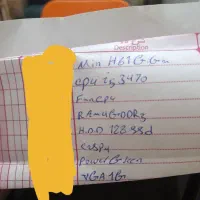 Description
Main H61 G.Gm
cpu i5 3470
Fan Cpu
RAm 4G DDR3
H.D.D 128 SSd
Power Green
VGA 1G